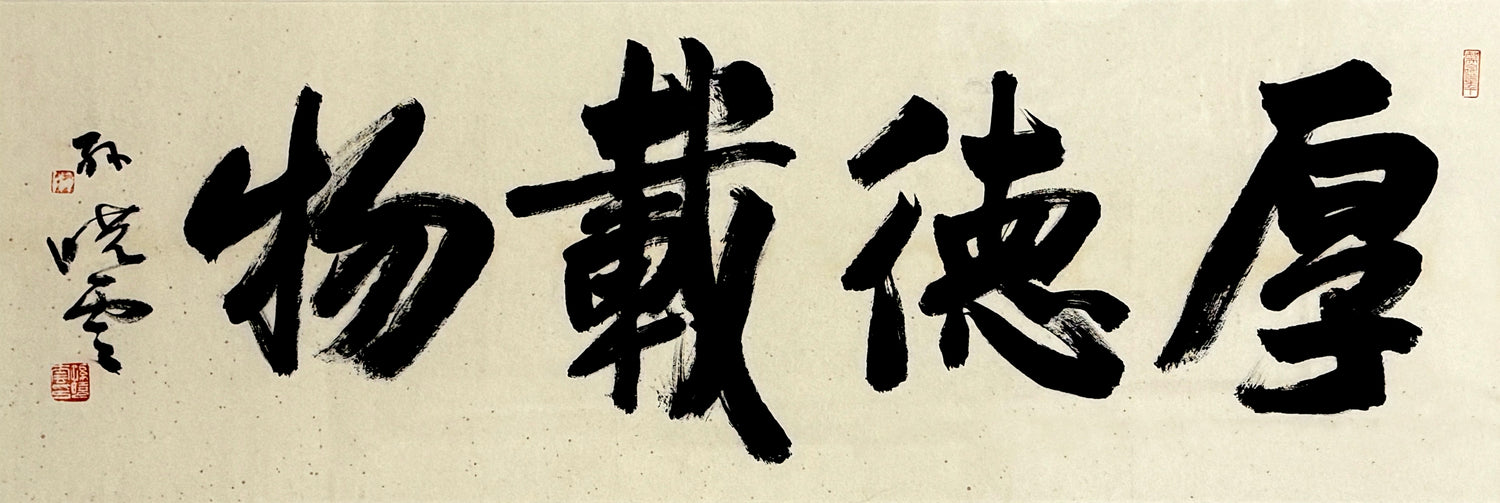 厚德載物
孫曉雲